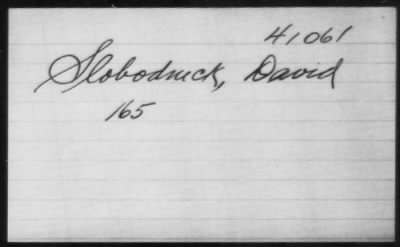 41061
Slobodnick, David
165